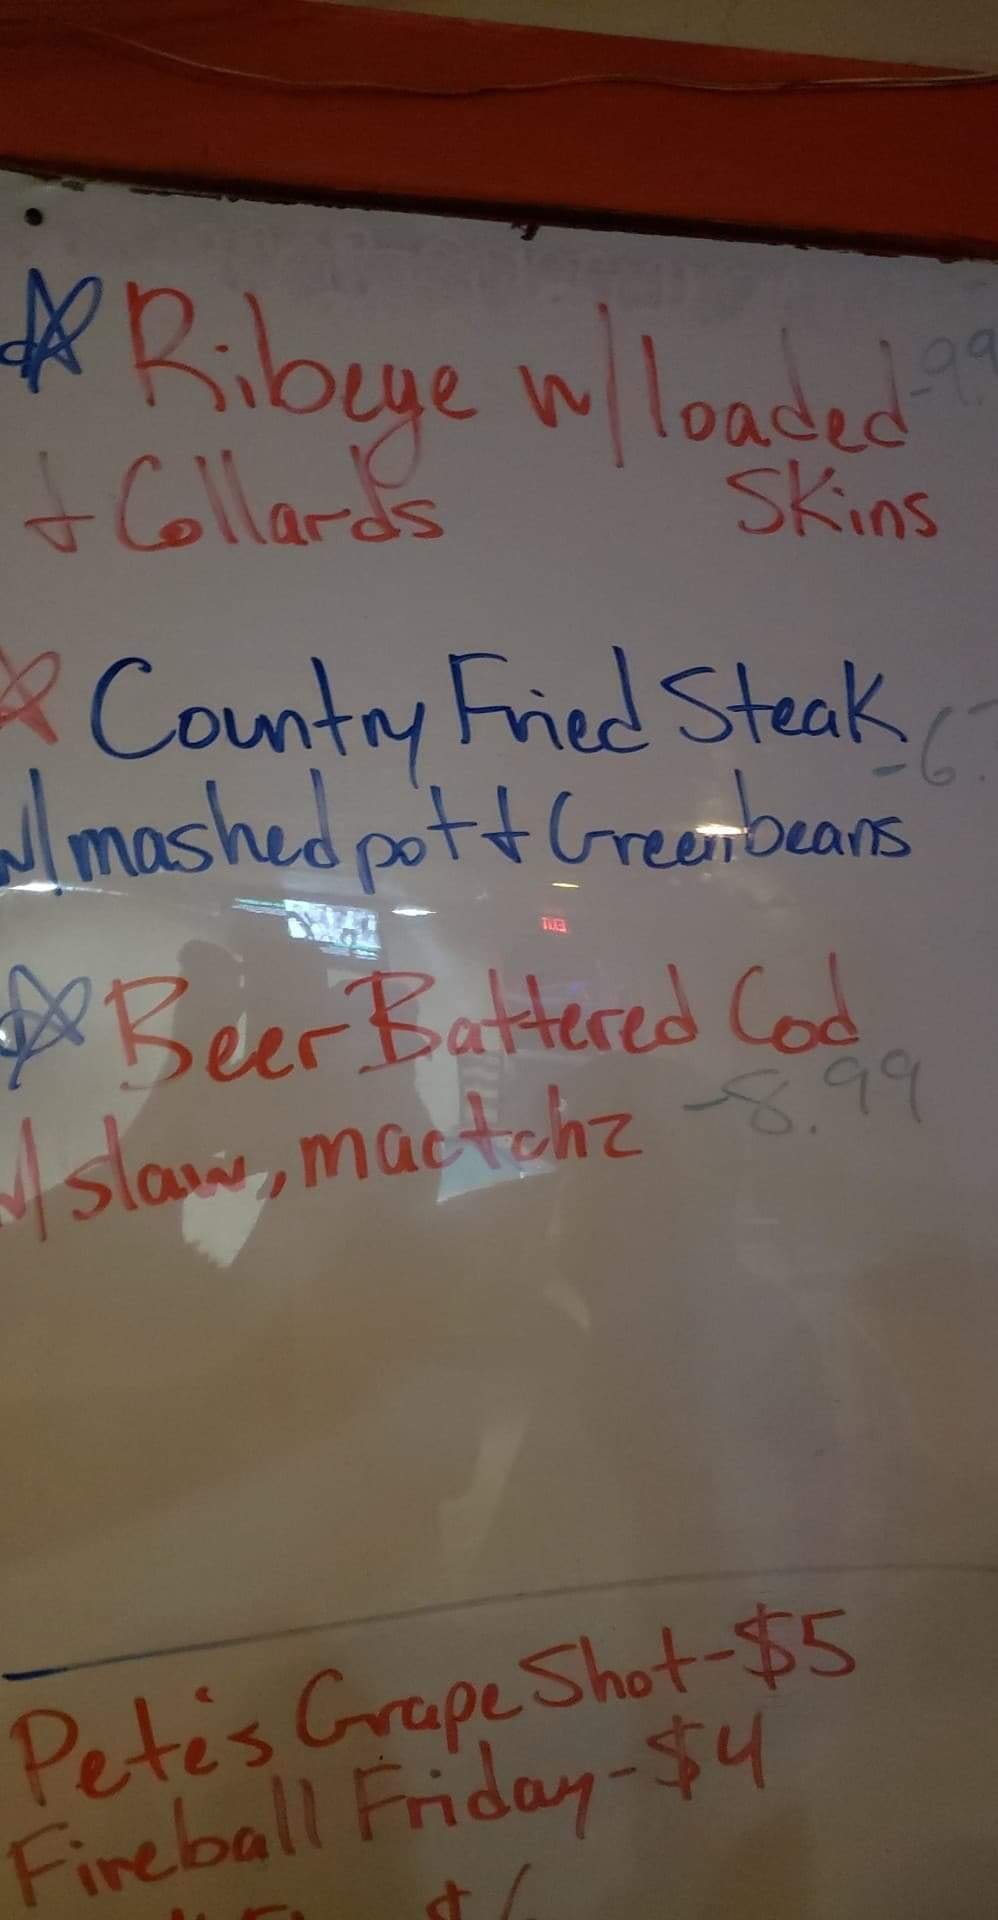 Ribeye w/loaded -9.9
+ Collards Skins
Country Fried Steak -6.
w/mashed pot + Greenbeans
Beer Battered Cod
w/slaw, mactchz -8.99
Pete's Grape Shot-$5
Fireball Friday-$4